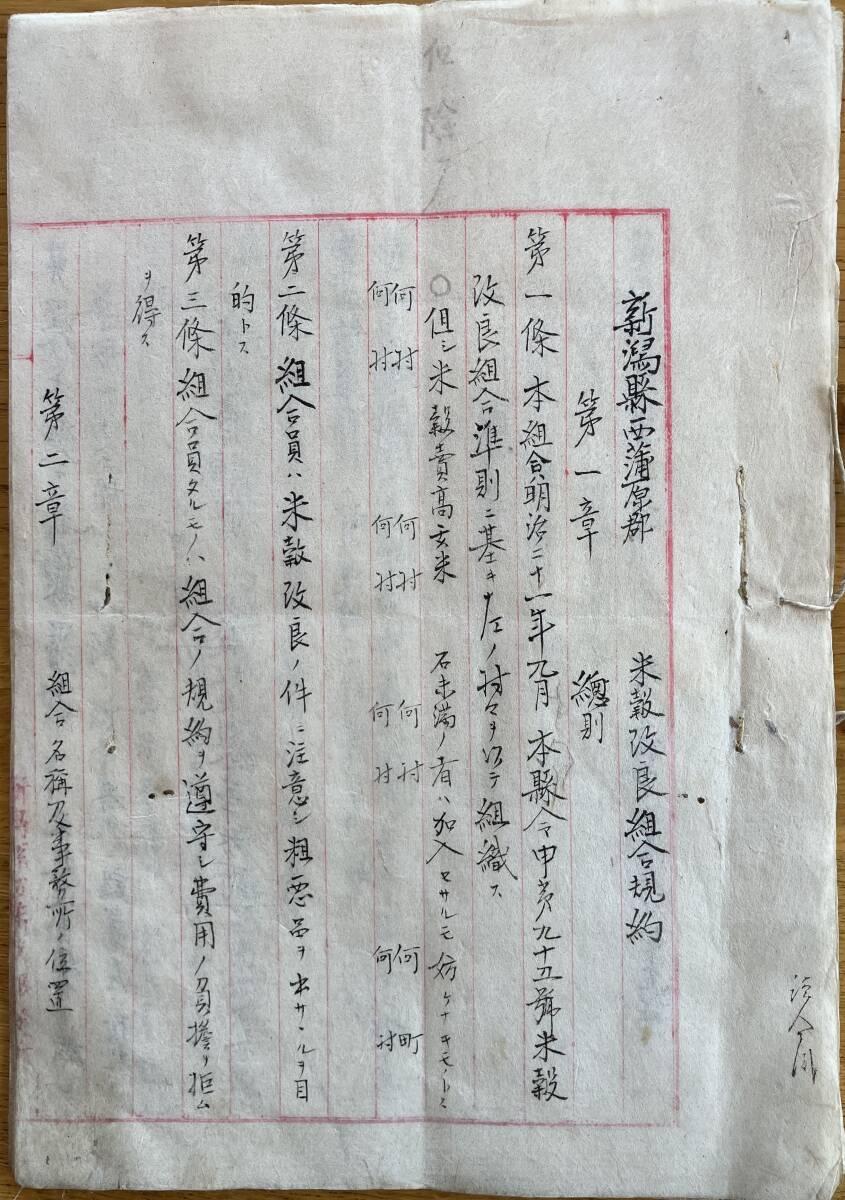 新潟縣西蒲原郡　米穀改良組合規約
第一章　總則
第一條　本組合ハ明治二十一年九月本縣令甲第九十五號米穀
改良組合準則ニ基キ左ノ村々ヲ以テ組織ス
○但シ米穀賣高玄米　石未満ノ者ハ加入セサルモ妨ケナキモノトス
何村　何村　何村　何町
何村　何村　何村　何村
第二條　組合員ハ米穀改良ノ件ニ注意シ粗悪品ヲ出サヽルヲ目
的トス
第三條　組合員タルモノハ組合ノ規約ヲ遵守シ費用ノ負擔ヲ拒ム
ヲ得ス
第二章　組合名稱及事務所ノ位置